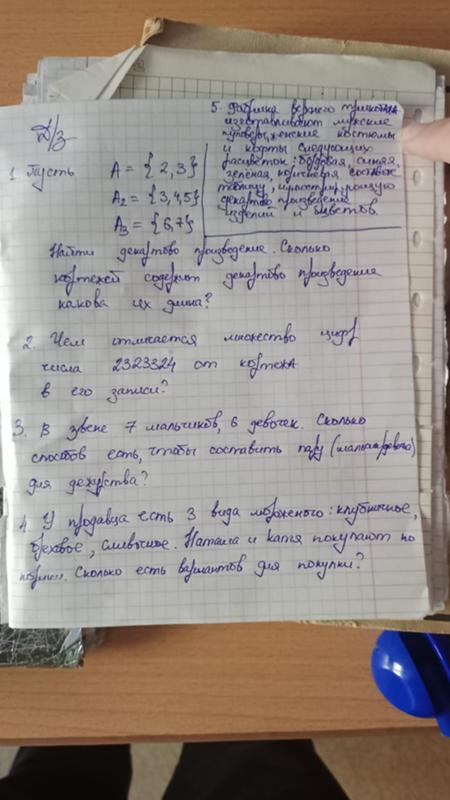 Д/З
1. Пусть A = {2,3}
A₂ = {3,4,5}
A₃ = {6,7}
Найти декартово произведение. Сколько
кортежей содержит декартово произведение
какова их длина?
2. Чем отличается множество цифр
числа 2323324 от кортежа
в его записи?
3. В звене 7 мальчиков, 6 девочек. Сколько
способов есть, чтобы составить пару (мальчик, девочка)
для дежурства?
4. У продавца есть 3 вида мороженого: клубничное,
ореховое, сливочное. Наташа и Катя покупают по
порции. Сколько есть вариантов для покупки?
5. Фабрика верхнего трикотажа
изготавливают мужские
женские костюмы
и кофты следующих
расцветок: бордовая, синяя,
зелёная, коричневая
таблицу, иллюстрирующую
декартово произведение
изделий и цветов.